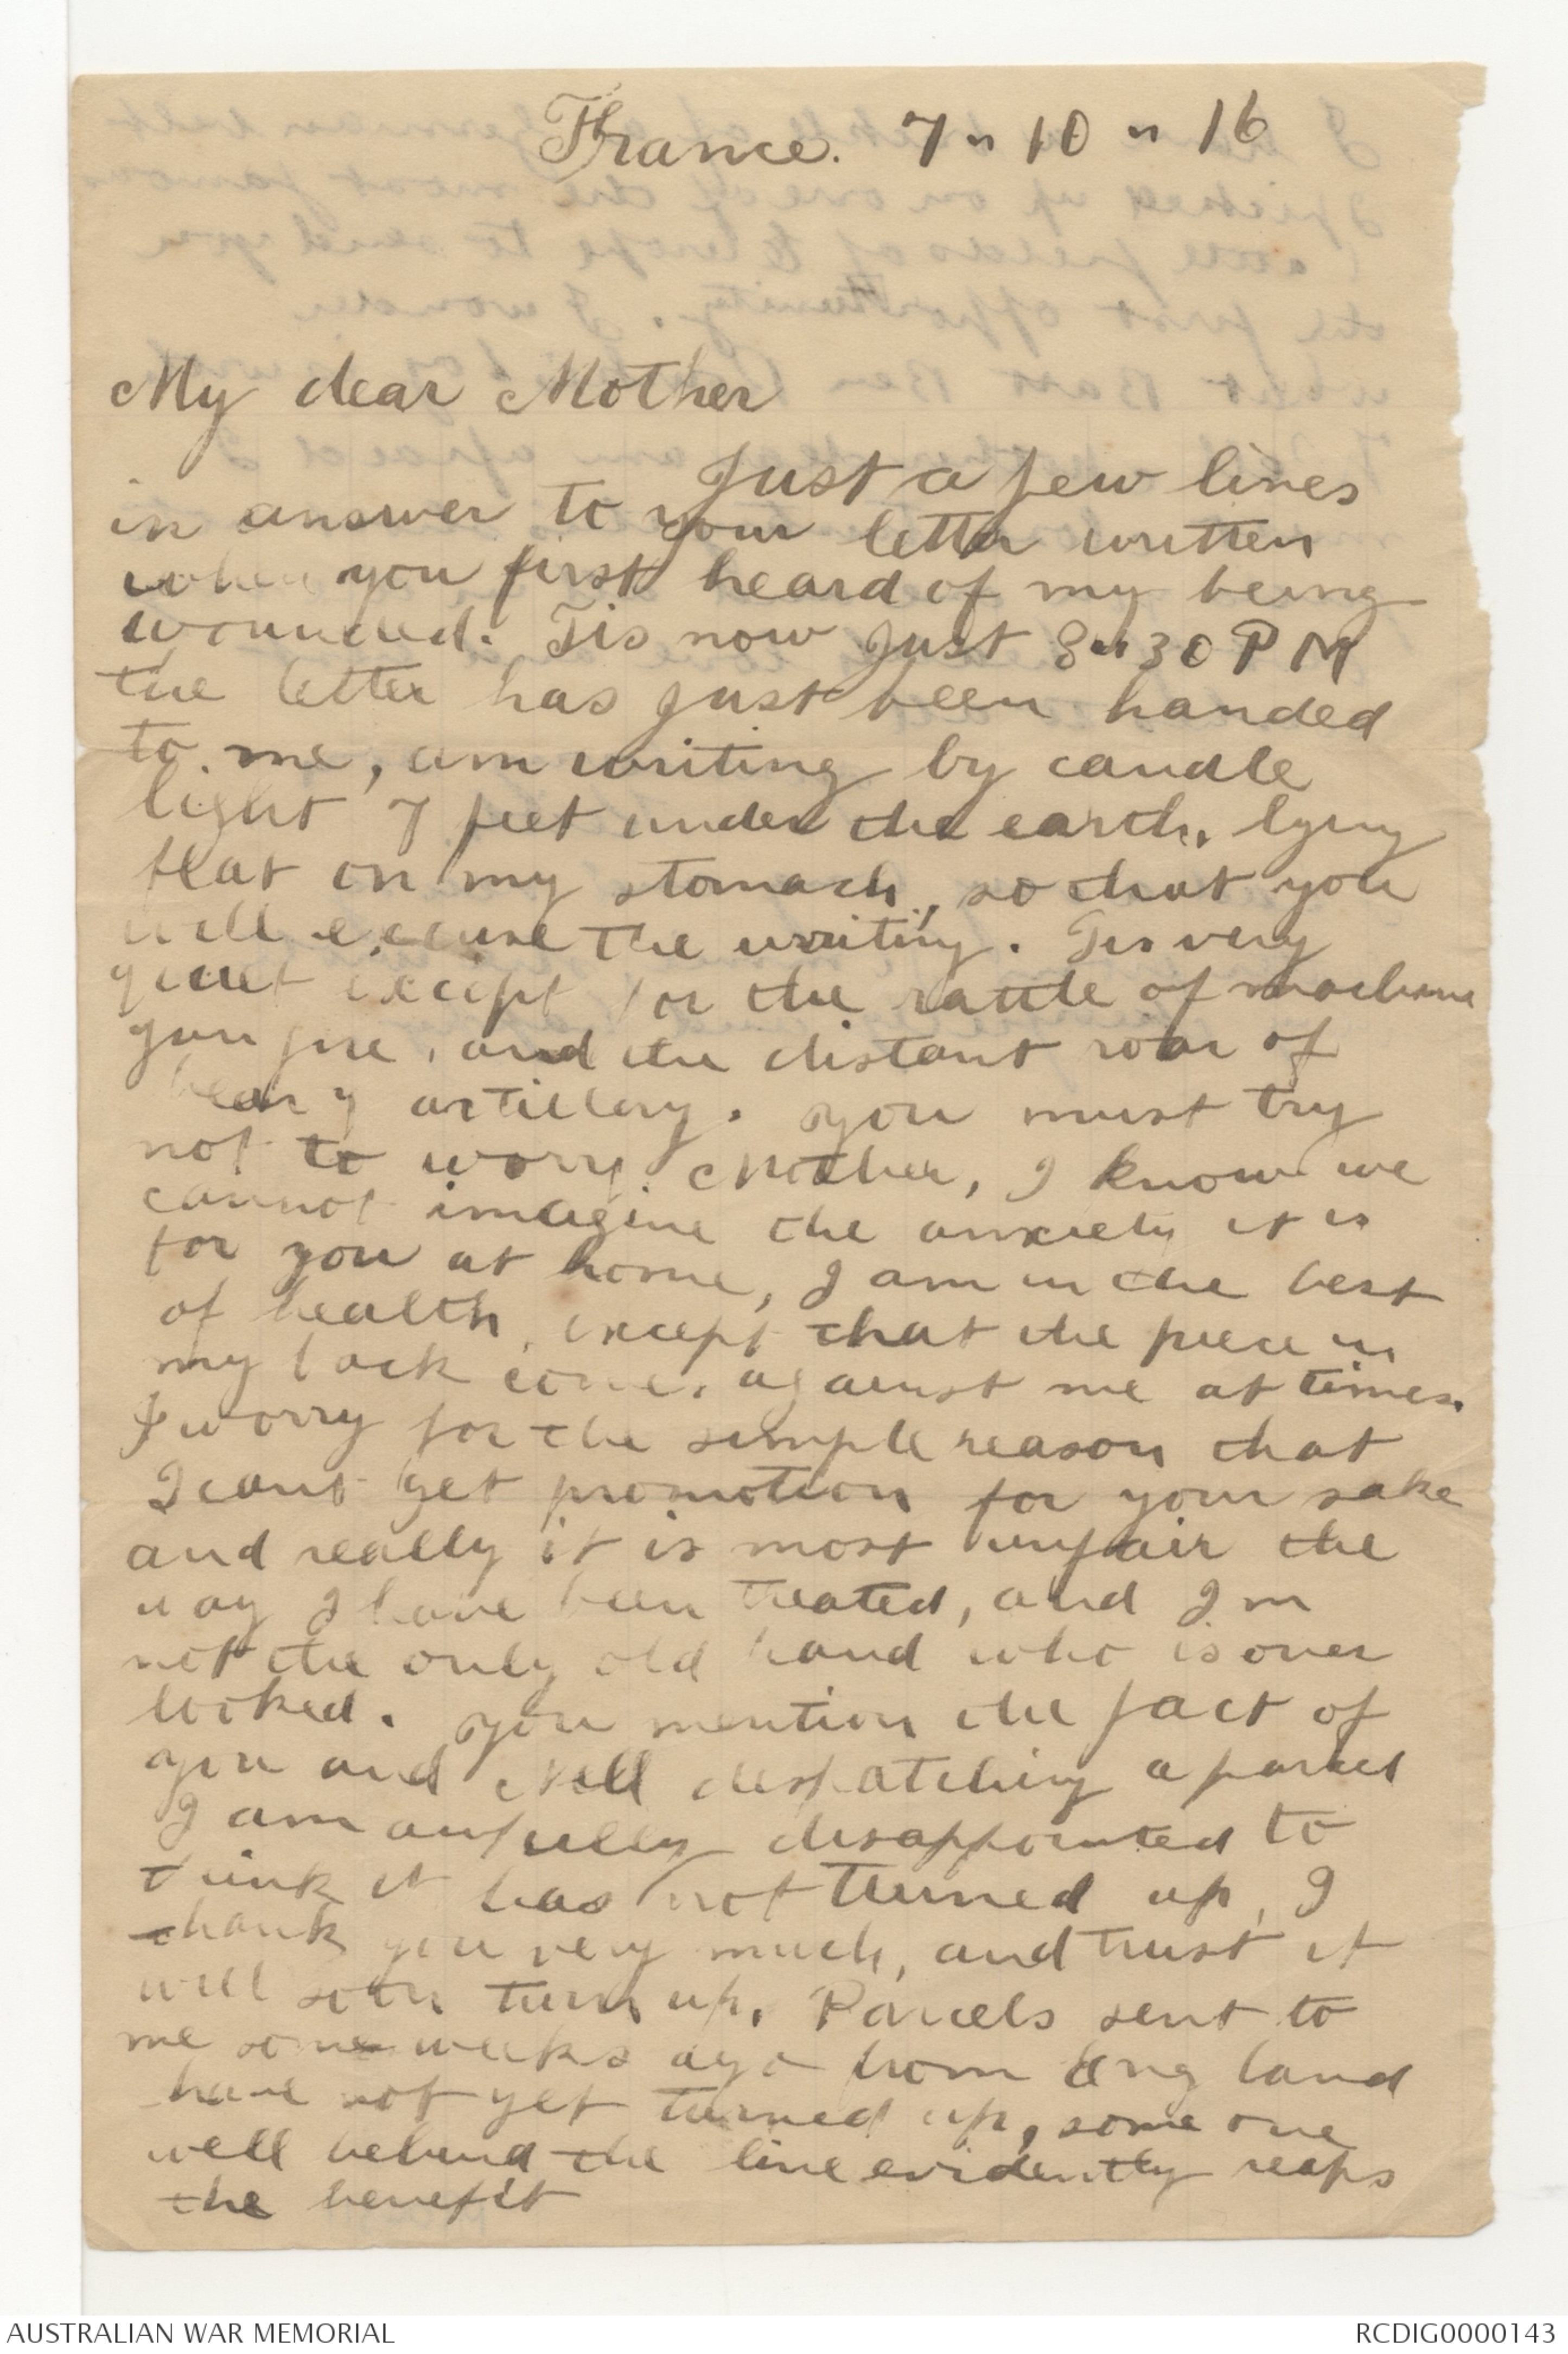 France. 7 " 10 " 16
My dear Mother
Just a few lines
in answer to your letter written
when you first heard of my being
wounded. Tis now just 8"30 PM
the letter has just been handed
to me, am writing by candle
light 7 feet under the earth, lying
flat on my stomach, so that you
will excuse the writing. Tis very
quiet except for the rattle of machine
gun fire, and the distant roar of
heavy artillery. You must try
not to worry Mother, I know we
cannot imagine the anxiety it is
for you at home, I am in the best
of health, except that the piece in
my back comes against me at times.
I worry for the simple reason that
I cant get promotion for your sake
and really it is most unfair the
way I have been treated, and Im
not the only old hand who is over
looked. You mention the fact of
you and Nell despatching a parcel
I am awfully disappointed to
think it has not turned up, I
thank you very much, and trust it
will soon turn up. Parcels sent to
me some weeks ago from Eng land
have not yet turned up, some one
well behind the line evidently reaps
the benefit
AUSTRALIAN WAR MEMORIAL
RCDIG0000143